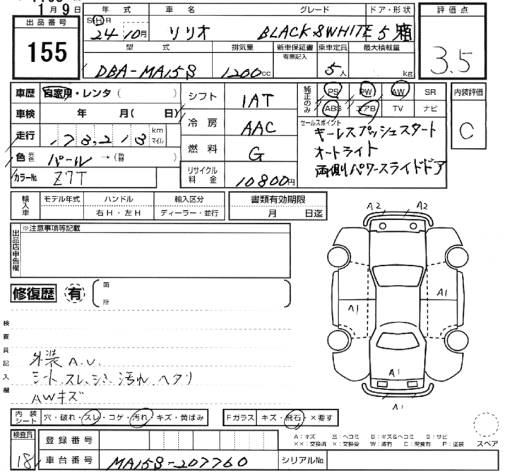 1月9日
出品番号
155
年式
S H R 24年10月
車名
ソリオ
グレード
BLACK&WHITE
ドア・形状
5 箱
評価点
3.5
型式
DBA-MA15S
排気量
1200cc
新車保証書
有無記入
乗車定員
5人
最大積載量
kg
車歴 自家用・レンタ ( )
車検 年 月( 日)
走行 178,218 km マイル
色 パール →( )
カラーNo Z7T
シフト 1AT
冷房 AAC
燃料 G
リサイクル料金 10800円
純正のみ
PS PW AW SR
ABS エアB TV ナビ
内装評価
C
セールスポイント
キーレスプッシュスタート
オートライト
両側パワースライドドア
輸入車
モデル年式 ハンドル 輸入区分
右H・左H ディーラー・並行
書類有効期限
月 日迄
出品店申告欄
※注意事項等記載
修復歴 有
箇所
検査員記入欄
外装A.U
シート スレ、シミ、汚れ、ヘタリ
AWキズ
A2 A2
A1 A1
A1
A1
内装シート 穴・破れ・スレ・コゲ・汚れ・キズ・黄ばみ
Fガラス キズ・飛石・×要す
A:キズ
スペア
検査員
18
登録番号
車台番号 MA15S-207760
シリアルNo